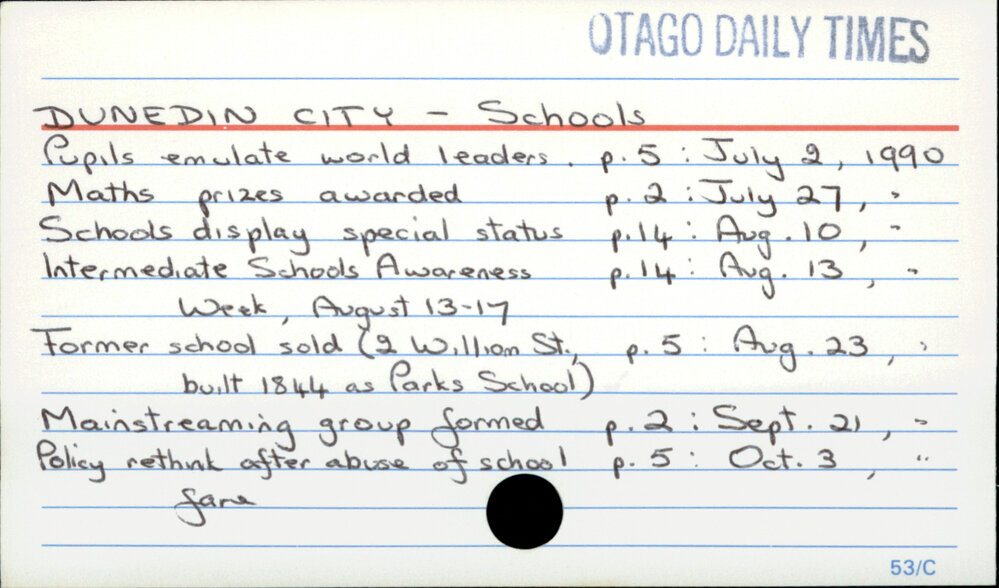 OTAGO DAILY TIMES
DUNEDIN CITY - Schools
Pupils emulate world leaders. p. 5 : July 2, 1990
Maths prizes awarded p. 2 : July 27, "
Schools display special status p. 14 : Aug. 10, "
Intermediate Schools Awareness p. 14 : Aug. 13, "
Week, August 13-17
Former school sold (2 William St., p. 5 : Aug. 23, "
built 1844 as Parks School)
Mainstreaming group formed p. 2 : Sept. 21, "
Policy rethink after abuse of school p. 5 : Oct. 3, "
fare
53/C